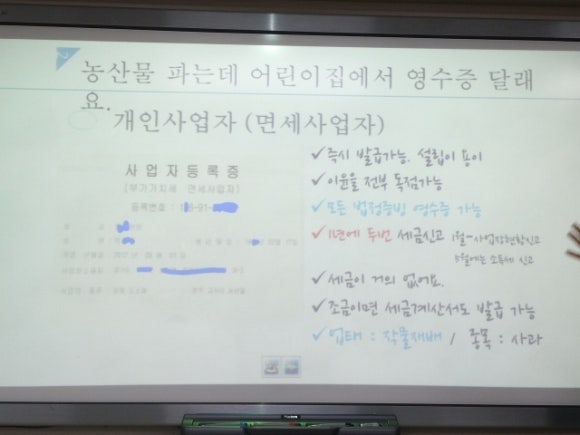 농산물 파는데 어린이집에서 영수증 달래
요.
개인사업자 (면세사업자)
사 업 자 등 록 증
(부가가치세 면세사업자)
등록번호 :
-91-
✓즉시 발급가능. 설립이 용이
✓이윤을 전부 독점가능
✓모든 법정증빙 영수증 가능
✓1년에 두번 세금신고 1월-사업장현황신고
5월에는 소득세 신고
✓세금이 거의 없어요.
✓조금이면 세금계산서도 발급 가능
✓업태 : 작물재배 / 종목 : 사과